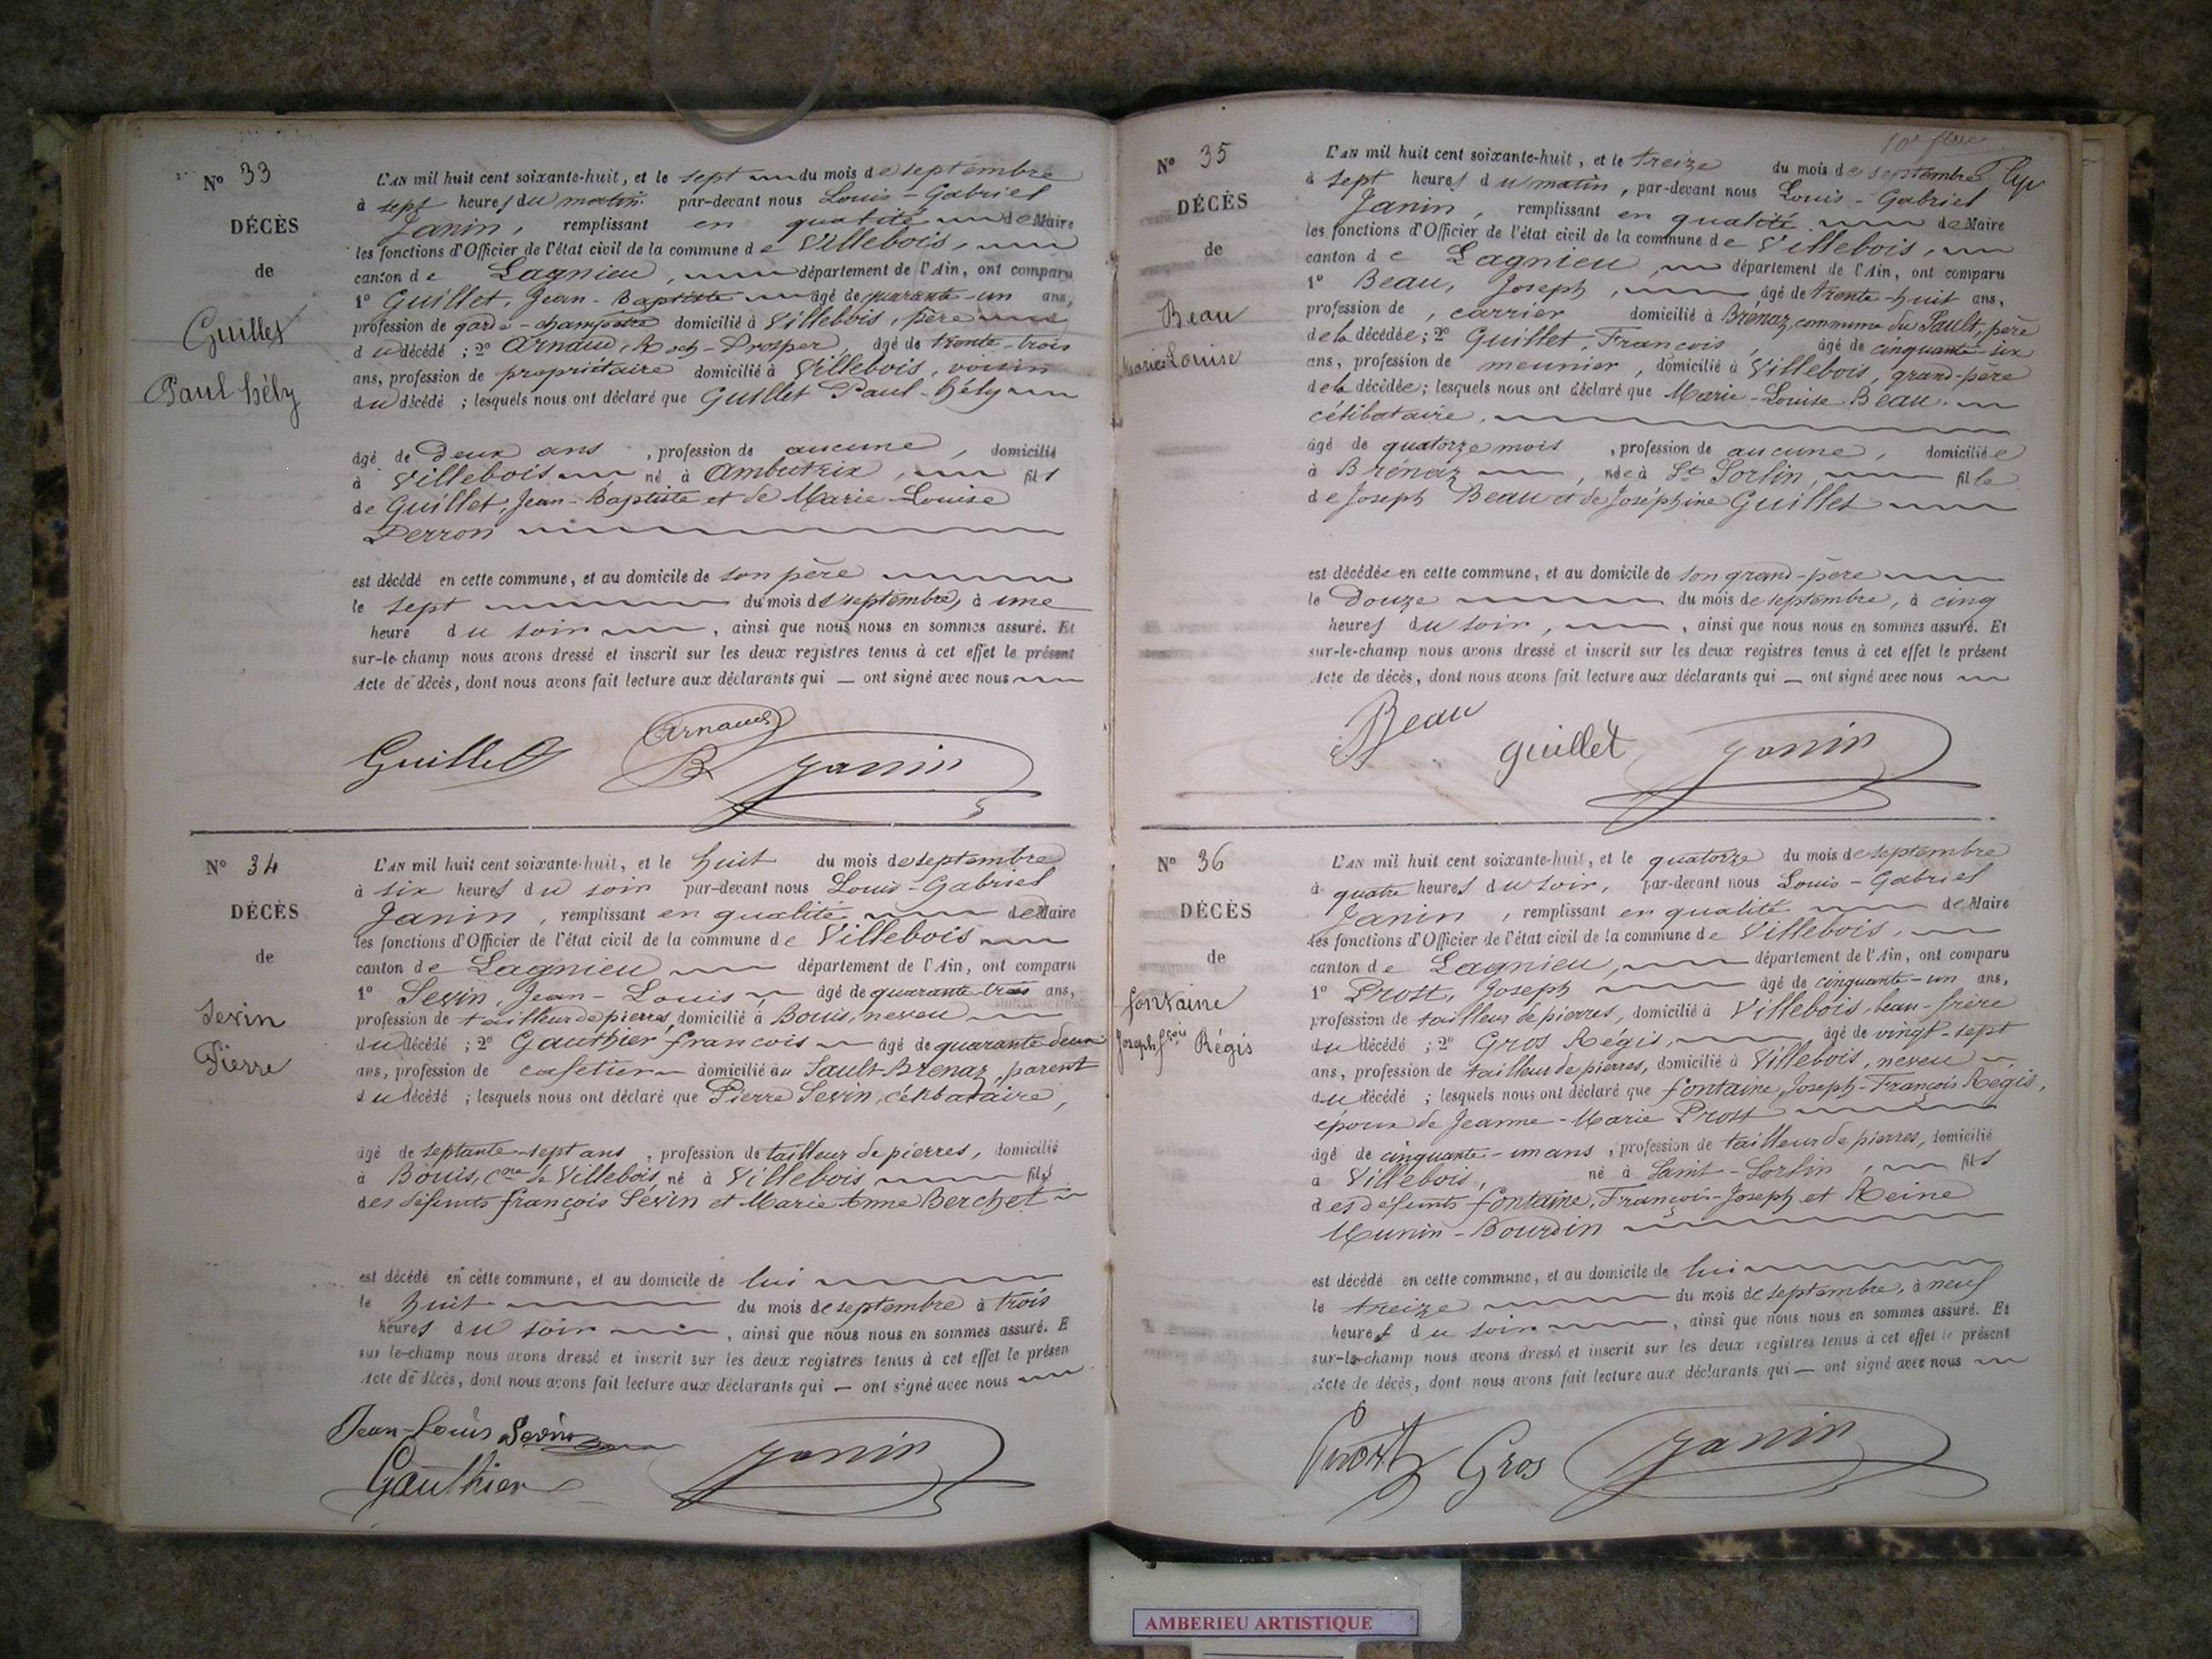 N° 33
DÉCÈS
de
Guillet
Paul hély
L'AN mil huit cent soixante-huit, et le sept du mois de septembre
à sept heures du matin par-devant nous Louis-Gabriel
Janin, remplissant en qualité de Maire
les fonctions d'Officier de l'état civil de la commune de Villebois,
canton de Lagnieu, département de l'Ain, ont comparu
1° Guillet, Jean-Baptiste âgé de quarante-un ans,
profession de garde-champêtre domicilié à Villebois, père
du décédé ; 2° Arnaud, Roch-Prosper, âgé de trente-trois
ans, profession de propriétaire domicilié à Villebois, voisin
du décédé ; lesquels nous ont déclaré que Guillet Paul-hély
âgé de Deux ans, profession de aucune, domicilié
à Villebois né à Ambutrix, fils
de Guillet, Jean-Baptiste et de Marie-Louise
Perron
est décédé en cette commune, et au domicile de son père
le sept du mois de septembre, à une
heure du soir, ainsi que nous nous en sommes assuré. Et
sur-le-champ nous avons dressé et inscrit sur les deux registres tenus à cet effet le présent
Acte de décès, dont nous avons fait lecture aux déclarants qui — ont signé avec nous
Guillet Arnaud Janin
N° 34
DÉCÈS
de
Sevin
Pierre
L'AN mil huit cent soixante-huit, et le huit du mois de septembre
à six heures du soir par-devant nous Louis-Gabriel
Janin, remplissant en qualité de Maire
les fonctions d'Officier de l'état civil de la commune de Villebois
canton de Lagnieu département de l'Ain, ont comparu
1° Sevin, Jean-Louis, âgé de quarante-trois ans,
profession de tailleur de pierres, domicilié à Bouis, neveu
du décédé ; 2° Gauthier françois âgé de quarante deux
ans, profession de cafetier domicilié au Sault-Brenaz, parent
du décédé ; lesquels nous ont déclaré que Pierre Sevin, célibataire,
âgé de septante-sept ans, profession de tailleur de pierres, domicilié
à Bouis, Cne de Villebois, né à Villebois fils
des défunts françois Sevin et Marie Anne Berchet
est décédé en cette commune, et au domicile de lui
le huit du mois de septembre à trois
heures du soir, ainsi que nous nous en sommes assuré. E
sur le-champ nous avons dressé et inscrit sur les deux registres tenus à cet effet le présen
Acte de décès, dont nous avons fait lecture aux déclarants qui — ont signé avec nous
Jean-Louis Sevin
Gauthier Janin
N° 35
DÉCÈS
de
Beau
Marie Louise
L'AN mil huit cent soixante-huit, et le treize du mois de septembre
à sept heures du matin, par-devant nous Louis-Gabriel
Janin, remplissant en qualité de Maire
les fonctions d'Officier de l'état civil de la commune de Villebois,
canton de Lagnieu, département de l'Ain, ont comparu
1° Beau, Joseph, âgé de trente-huit ans,
profession de, carrier domicilié à Brénaz, commune du Sault, père
de la décédée ; 2° Guillet, François, âgé de cinquante-six
ans, profession de meunier, domicilié à Villebois, grand-père
de la décédée ; lesquels nous ont déclaré que Marie-Louise Beau.
célibataire.
âgé de quatorze mois, profession de aucune, domiciliée
à Brénaz, née à St Sorlin, fille
de Joseph Beau et de Joséphine Guillet
est décédée en cette commune, et au domicile de son grand-père
le Douze du mois de septembre, à cinq
heures du soir, ainsi que nous nous en sommes assuré. Et
sur-le-champ nous avons dressé et inscrit sur les deux registres tenus à cet effet le présent
Acte de décès, dont nous avons fait lecture aux déclarants qui — ont signé avec nous
Beau guillet Janin
N° 36
DÉCÈS
de
fontaine
Joseph fçois Régis
L'AN mil huit cent soixante-huit, et le quatorze du mois de septembre
à quatre heures du soir, par-devant nous Louis-Gabriel
Janin, remplissant en qualité de Maire
les fonctions d'Officier de l'état civil de la commune de Villebois,
canton de Lagnieu, département de l'Ain, ont comparu
1° Prost, Joseph âgé de cinquante-un ans,
profession de tailleur de pierres, domicilié à Villebois, beau-frère
du décédé ; 2° Gros Régis, âgé de vingt-sept
ans, profession de tailleur de pierres, domicilié à Villebois, neveu
du décédé ; lesquels nous ont déclaré que fontaine, Joseph-François Régis,
époux de Jeanne-Marie Prost
âgé de cinquante-un ans, profession de tailleur de pierres, domicilié
à Villebois, né à Saint-Sorlin, fils
des défunts fontaine, François-Joseph et Reine
Munin-Bourdin
est décédé en cette commune, et au domicile de lui
le treize du mois de septembre, à neuf
heures du soir, ainsi que nous nous en sommes assuré. Et
sur-le-champ nous avons dressé et inscrit sur les deux registres tenus à cet effet le présent
Acte de décès, dont nous avons fait lecture aux déclarants qui — ont signé avec nous
Prost Gros Janin
AMBERIEU ARTISTIQUE